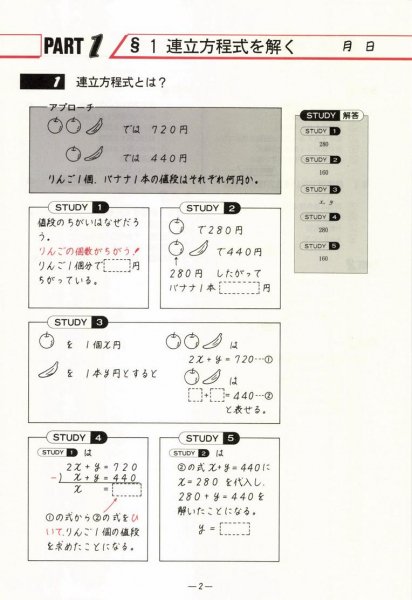 PART 1
§1 連立方程式を解く
月 日
1 連立方程式とは?
アプローチ
では 720円
では 440円
りんご1個、バナナ1本の値段はそれぞれ何円か。
STUDY 1
値段のちがいはなぜだろ
う。
りんごの個数がちがう!
りんご1個分で 円
ちがっている。
STUDY 2
で280円
で440円
280円 したがって
バナナ1本 円
STUDY 3
を 1個x円
を 1本y円とすると
2x+y=720…①
は
+ =440…②
と表せる。
STUDY 4
STUDY 1 は
2x+y=720
-) x+y=440
x =
①の式から②の式をひ
いて、りんご1個の値段
を求めたことになる。
STUDY 5
STUDY 2 は
②の式x+y=440に
x=280 を代入し、
280+y=440を
解いたことになる。
y=
STUDY 解答
STUDY 1
280
STUDY 2
160
STUDY 3
x, y
STUDY 4
280
STUDY 5
160
—2—